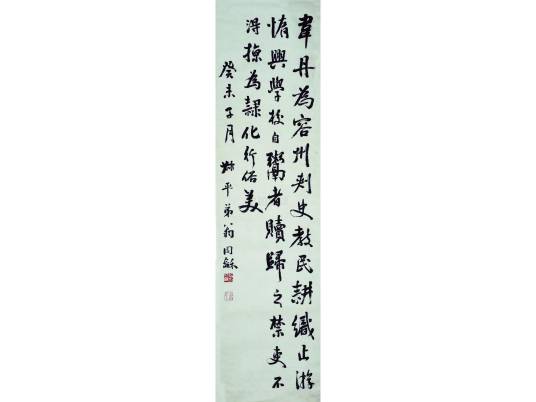 韋丹為容州刺史教民耕織止游
惰興學校自鬻者贖歸之禁吏不
得掠為隸化行俗美
癸未子月 叔平弟翁同龢